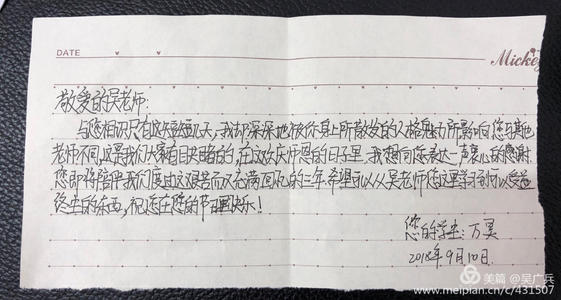 DATE
Mickey
敬爱的吴老师:
与您相识只有这短短几天,我却深深地被你身上所散发的人格魅力所影响您与其他
老师不同,这是我们大家有目共睹的,在这欢庆师恩的日子里,我想向您表达一声衷心的感谢
您即将陪伴我们度过这艰苦而又充满回忆的三年.希望可以从吴老师您这里学习到可以受益
终生的东西,祝您在您的节日里快乐!
您的学生:万昊
2018年9月10日.
美篇 @吴广兵
www.meipian.cn/c/431507